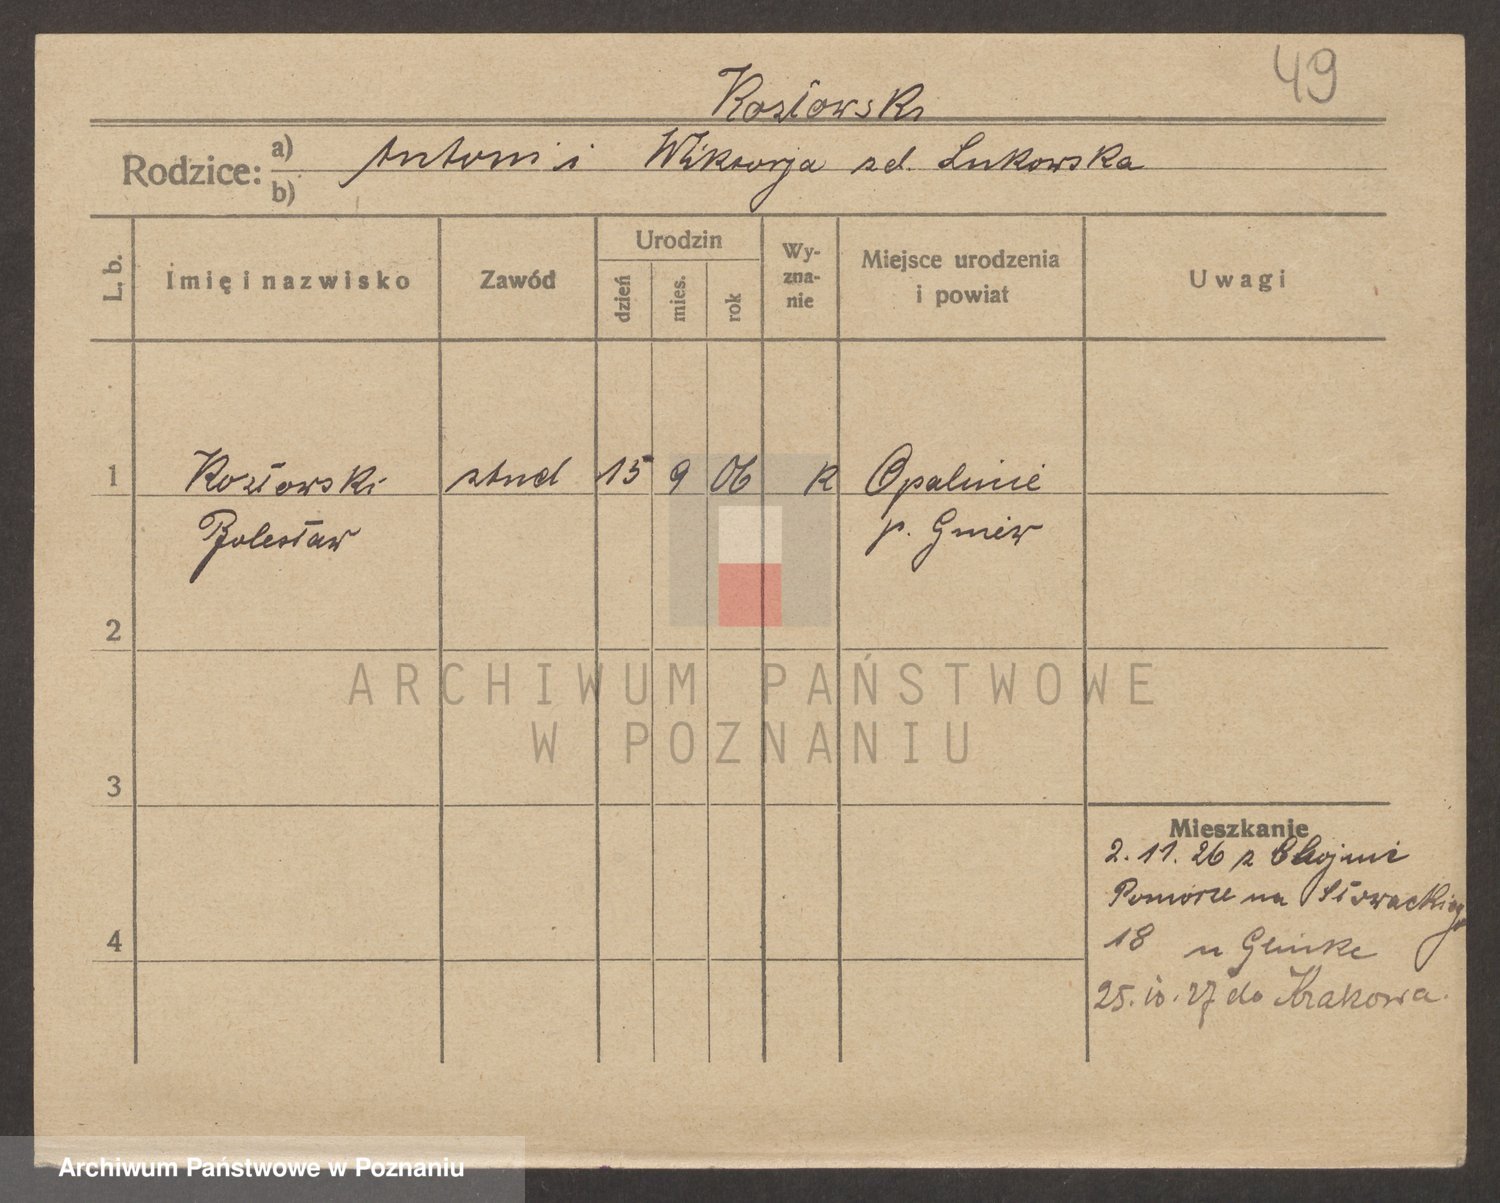 49
Kozłowski
Rodzice: a) Antoni i Wiktorja zd. Lukowska
b)
L. b. Imię i nazwisko Zawód Urodzin dzień mies. rok Wyzna-nie Miejsce urodzenia i powiat Uwagi
1 Kozłowski stud 15 9 06 k Opalenie
Bolesław p. Gniew
2
ARCHIWUM PAŃSTWOWE
W POZNANIU
3
Mieszkanie
2.11.26 z Chojnic
Pomorze na Słowackiego
4 18 u Glinke
25.10.27 do Krakowa.
Archiwum Państwowe w Poznaniu